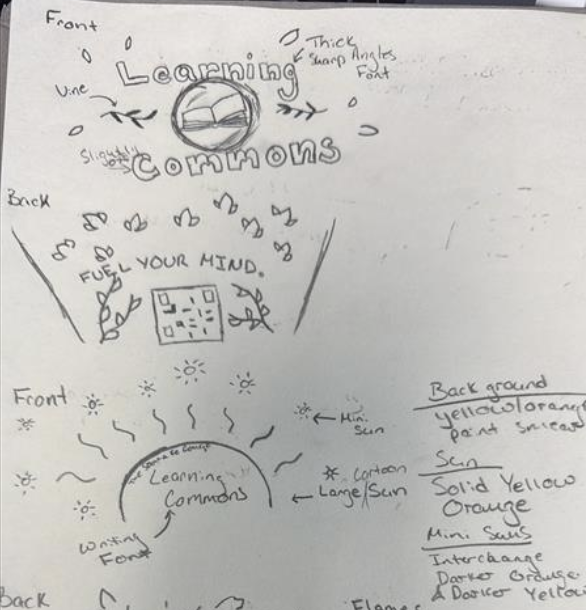 Front
Thick
Sharp Angles
Font
Learning
Vine
Slightly
Commons
Back
FUEL YOUR MIND.
Front
Mini
Sun
Learning
Commons
Cartoon
Large/Sun
Writing
Font
Background
Yellow/orange
paint smear
Sun
Solid Yellow
Orange
Mini Suns
Interchange
Darker Orange
& Darker Yellow
Back